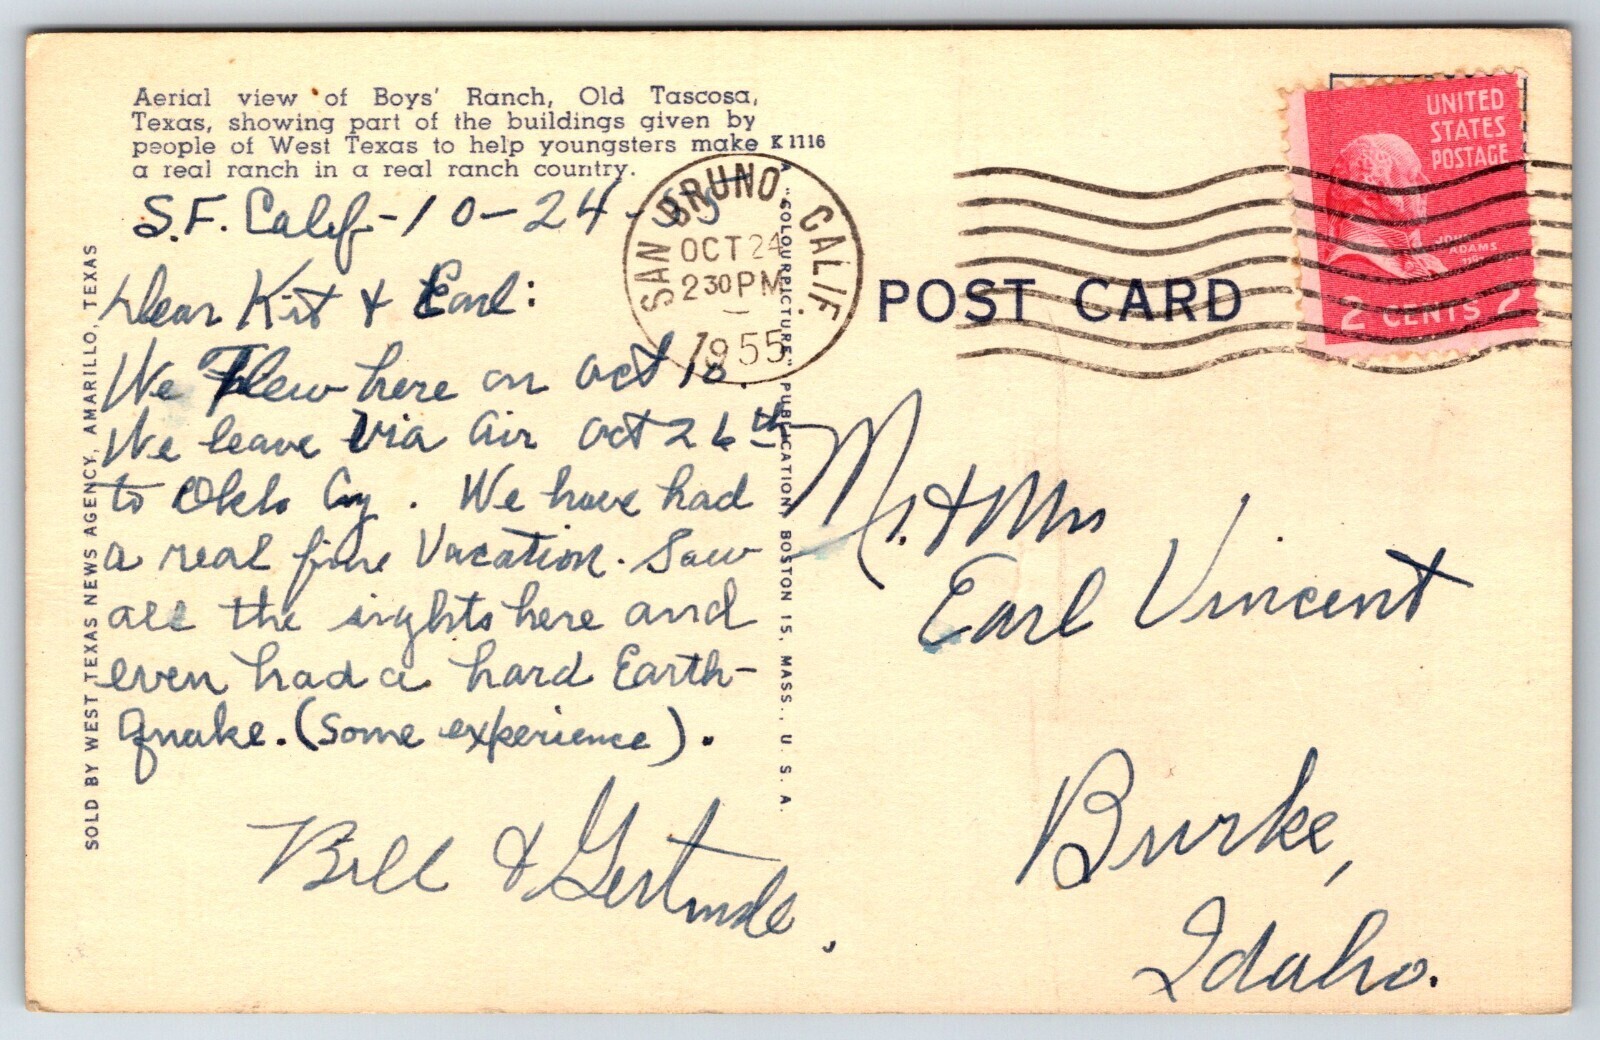 Aerial view of Boys' Ranch, Old Tascosa,
Texas, showing part of the buildings given by
people of West Texas to help youngsters make K 1116
a real ranch in a real ranch country.
S.F. Calif-10-24-55
Dear Kit & Earl:
We Flew here on Oct 18.
We leave Via Air Oct 26th
to Okla Cy. We have had
a real fine Vacation. Saw
all the sights here and
even had a hard Earth-
quake. (Some experience).
Bill & Gertrude.
SOLD BY WEST TEXAS NEWS AGENCY, AMARILLO, TEXAS
A "COLOURPICTURE" PUBLICATION, BOSTON 15, MASS., U. S. A.
SAN BRUNO, CALIF.
OCT 24
2 30 PM
1955
POST CARD
UNITED
STATES
POSTAGE
JOHN
ADAMS
2 CENTS 2
Mr. & Mrs
Earl Vincent
Burke,
Idaho.